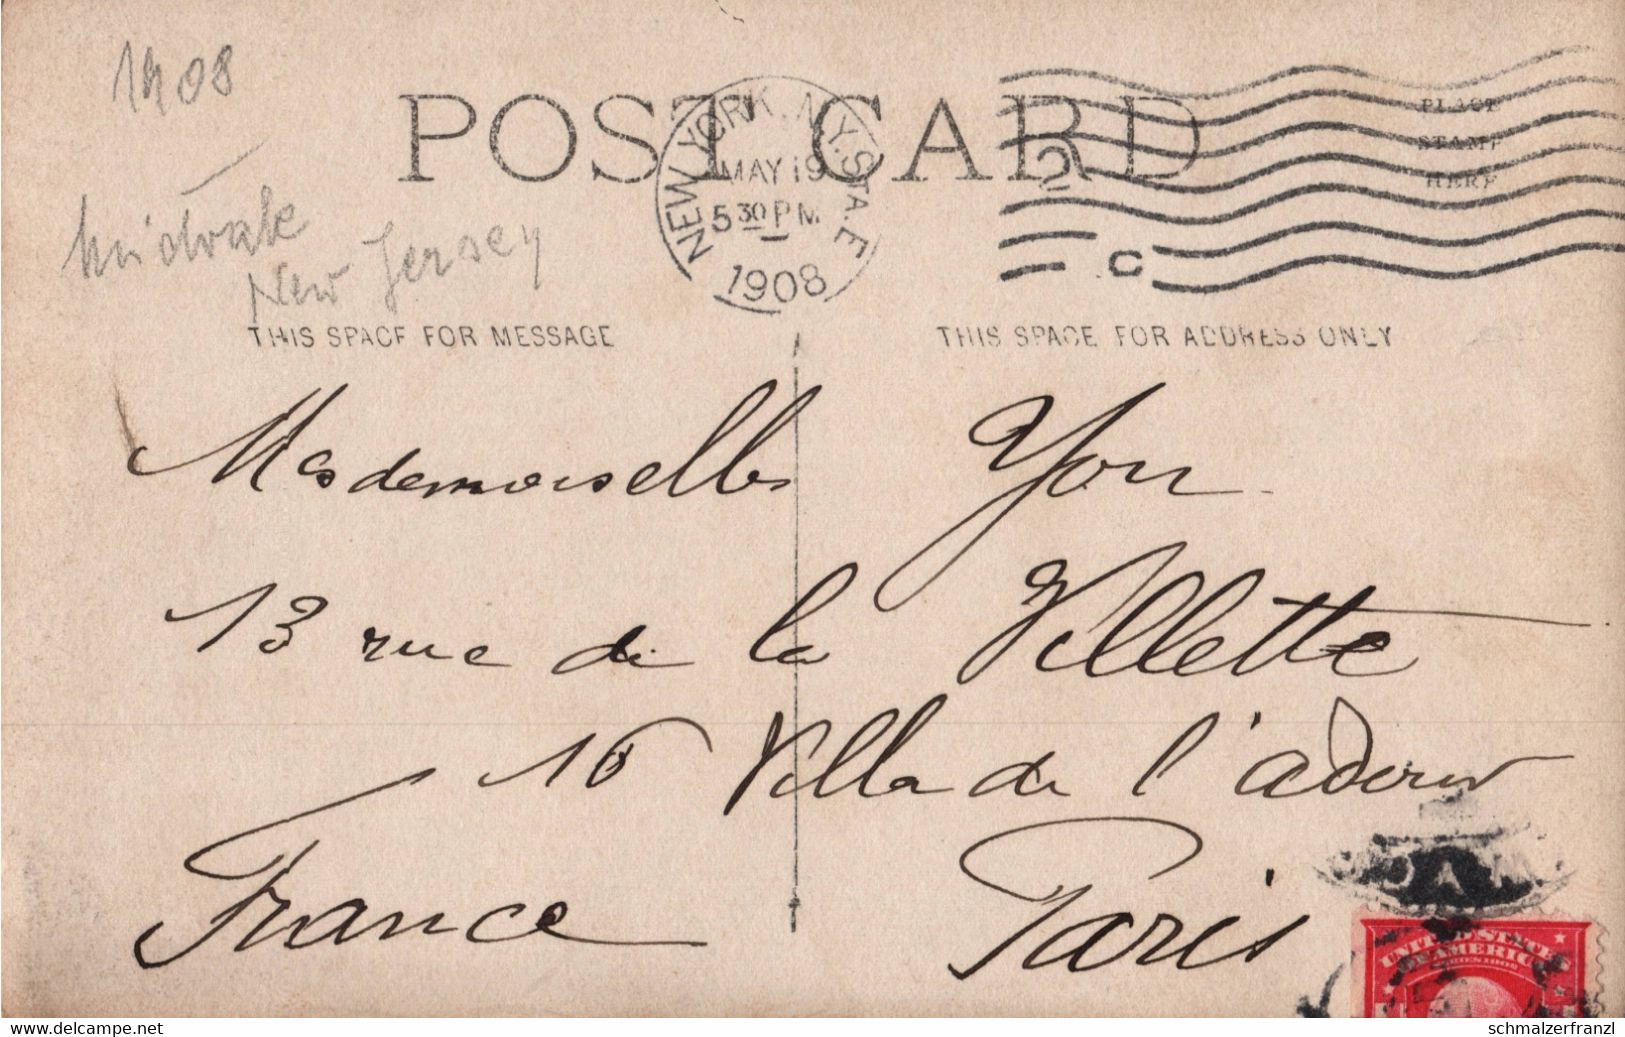 1908
POST CARD
PLACE
STAMP
HERE
NEW YORK, N.Y. STA. E
MAY 19
5 30 P M.
1908
2
C
Midvale
New Jersey
THIS SPACE FOR MESSAGE
THIS SPACE FOR ADDRESS ONLY
Mademoiselle You
13 rue de la Villette
16 Villa de l'adour
Paris
France
UNITED STATES
OF AMERICA
delcampe.net
schmalzerfranzl